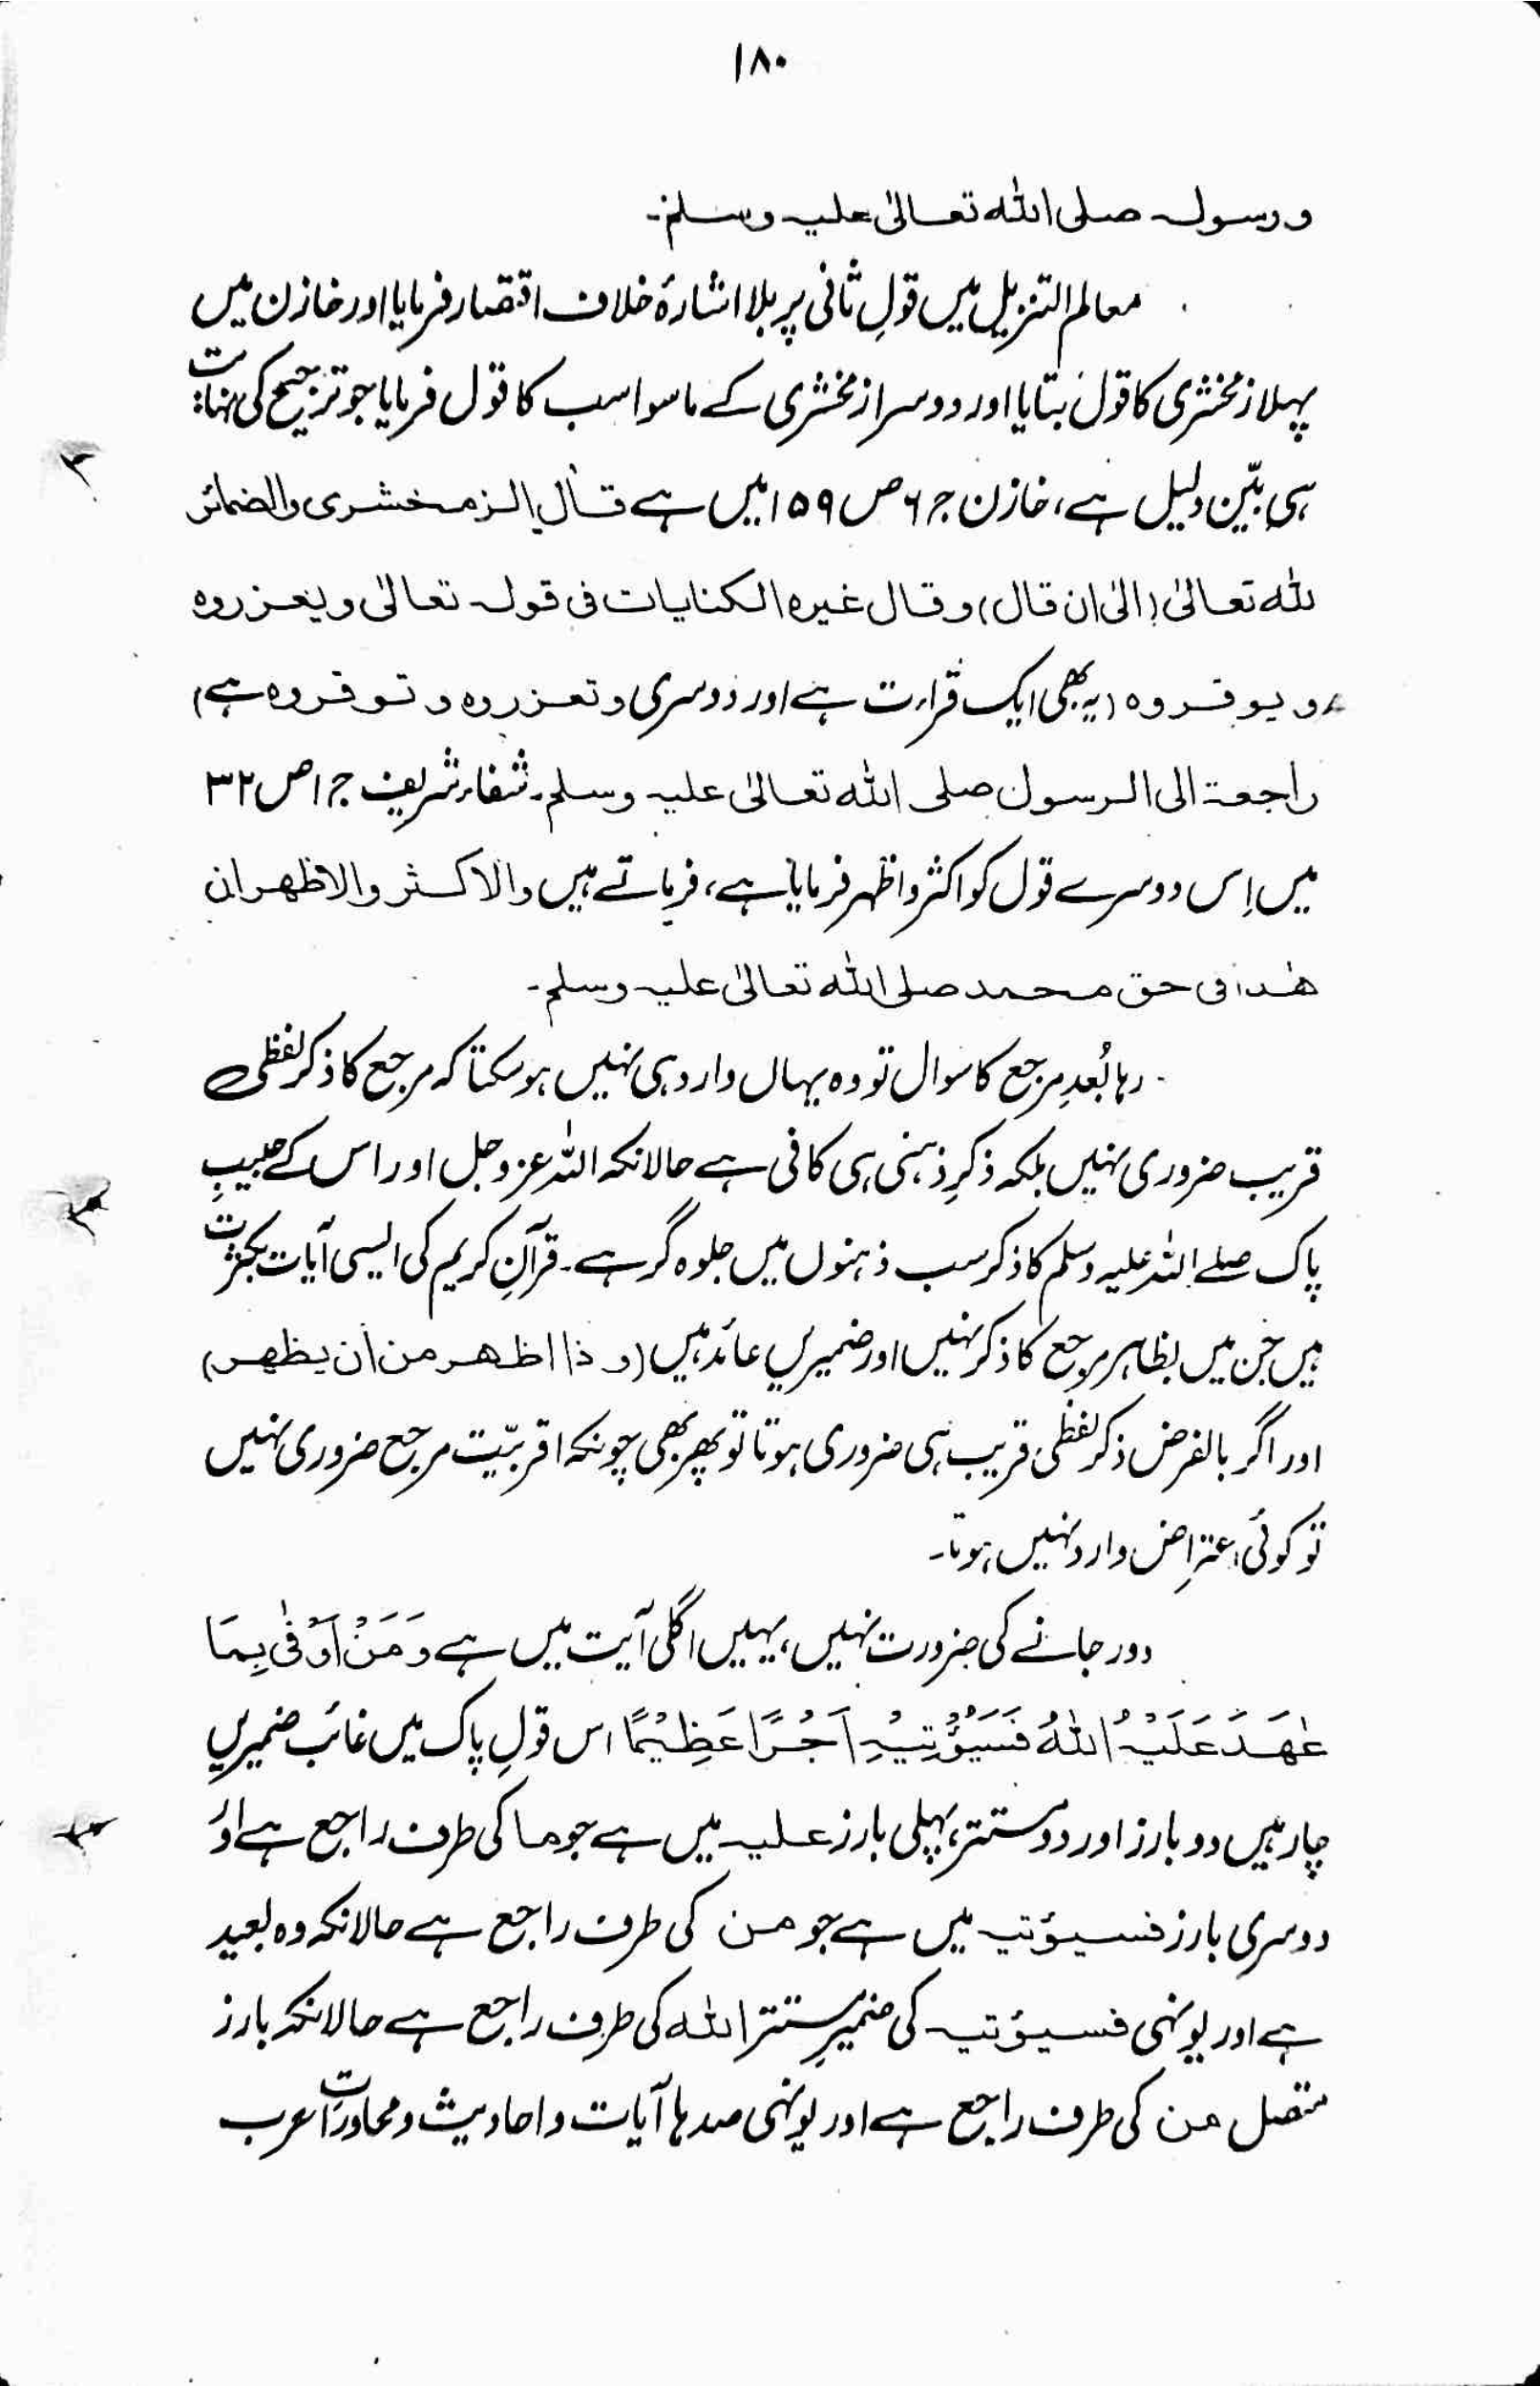 ۱۸۰
ورسولہ صلی اللہ تعالیٰ علیہ وسلم۔
معالم التنزیل میں قولِ ثانی پر بلا اشارۂ خلاف اقتصار فرمایا اور خازن میں
پہلا زمخشری کا قول بتایا اور دوسرا زمخشری کے ماسوا سب کا قول فرمایا جو ترجیح کی نہایت
ہی بیّن دلیل ہے، خازن ج ۶ ص ۱۵۹ میں ہے قال الزمخشری والضمائر
للہ تعالیٰ (الیٰ ان قال) وقال غیرہ الکنایات فی قولہ تعالیٰ ویعزروہ
ویوقروہ (یہ بھی ایک قراءت ہے اور دوسری وتعزروہ وتوقروہ ہے)
راجعۃ الی الرسول صلی اللہ تعالیٰ علیہ وسلم۔ شفاء شریف ج ۱ ص ۳۲
میں اِس دوسرے قول کو اکثر و اظہر فرمایا ہے، فرماتے ہیں والاکثر والاظہر ان
ھٰذا فی حق محمد صلی اللہ تعالیٰ علیہ وسلم۔
رہا بُعدِ مرجع کا سوال تو وہ یہاں وارد ہی نہیں ہو سکتا کہ مرجع کا ذکر لفظی
قریب ضروری نہیں بلکہ ذکرِ ذہنی ہی کافی ہے حالانکہ اللہ عز وجل اور اس کے حبیبِ
پاک صلے اللہ علیہ وسلم کا ذکر سب ذہنوں میں جلوہ گر ہے۔ قرآنِ کریم کی ایسی آیات بکثرت
ہیں جن میں بظاہر مرجع کا ذکر نہیں اور ضمیریں عائد ہیں (و ذا اظھر من ان یظھر)
اور اگر بالفرض ذکر لفظی قریب ہی ضروری ہوتا تو پھر بھی چونکہ اقربیّت مرجع ضروری نہیں
تو کوئی اعتراض وارد نہیں ہوتا۔
دور جانے کی ضرورت نہیں، یہیں اگلی آیت میں ہے وَمَنْ اَوْفٰی بِمَا
عٰھَدَ عَلَیْہُ اللہَ فَسَیُؤْتِیْہِ اَجْرًا عَظِیْمًا اس قولِ پاک میں غائب ضمیریں
چار ہیں دو بارز اور دو مستتر، پہلی بارز علیہ میں ہے جو ما کی طرف راجع ہے اور
دوسری بارز فسیؤتیہ میں ہے جو من کی طرف راجع ہے حالانکہ وہ بعید
ہے اور یونہی فسیؤتیہ کی ضمیرِ مستتر اللہ کی طرف راجع ہے حالانکہ بارز
متصل من کی طرف راجع ہے اور یونہی صدہا آیات و احادیث و محاورات عرب